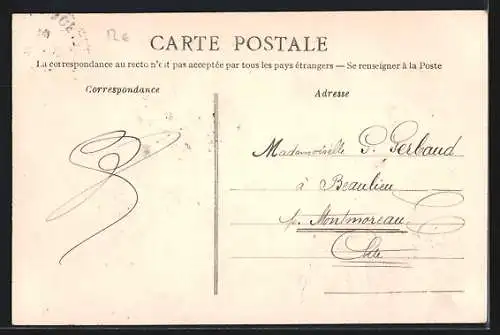 12e
CARTE POSTALE
La correspondance au recto n'est pas acceptée par tous les pays étrangers — Se renseigner à la Poste
Correspondance
Adresse
Mademoiselle G. Gerbaud
à Beaulieu
p. Montmoreau
Cte